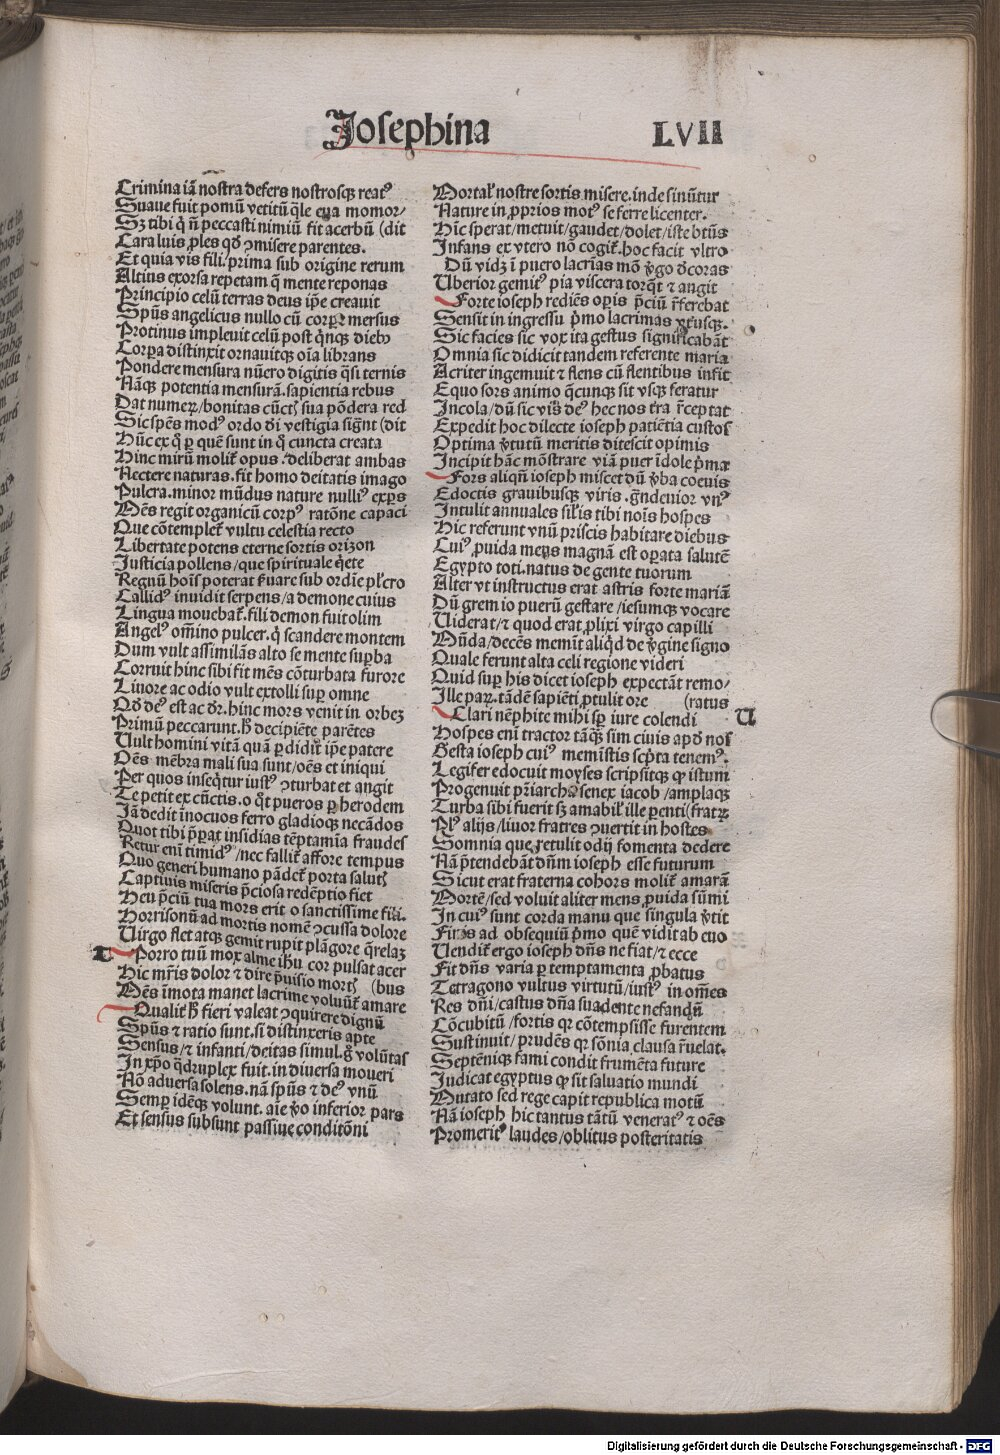 Josephina LVII
Crimina iã nostra defers nostrosqꝫ reatꝰ
Suaue fuit pomũ vetitũ q̃le eua momor/
Sꝫ tibi q̃ ñ peccasti nimiũ fit acerbũ (dit
Cara luis ꝓles qð ꝯmisere parentes.
Et quia vis fili prima sub origine rerum
Altius exorsa repetam q̃ mente reponas
Principio celũ terras deus ip̃e creauit
Spũs angelicus nullo cũ corꝑe mersus
Protinus impleuit celũ post q̃nqꝫ dieb⁹
Corꝑa distinxit ornauitqꝫ oĩa librans
Pondere mensura nũero digitis q̃si ternis
Nãqꝫ potentia mensurã. sapientia rebus
Dat numeꝝ/bonitas cũctꝭ sua põdera red
Sic spẽs modꝰ ordo dĩ vestigia sigñt (dit
Hũc ex q̃ ꝑ quẽ sunt in q̃ cuncta creata
Hinc mirũ molit̃ opus. deliberat ambas
Nectere naturas. fit homo deitatis imago
Pulcra. minor mũdus nature nulliꝰ exꝑs
Mẽs regit organicũ corpꝰ ratõne capaci
Que cõtemplet̃ vultu celestia recto
Libertate potens eterne sortis orizon
Justicia pollens/que spirituale q̃ete
Regnũ hoĩs poterat ẜuare sub ordĩe pl̃cro
Callidꝰ inuidit serpens/a demone cuius
Lingua mouebat̃. fili demon fuit olim
Angelꝰ om̃ino pulcer. q̃ scandere montem
Dum vult assimilãs alto se mente suꝑba
Corruit hinc sibi fit mẽs cõturbata furore
Liuore ac odio vult extolli suꝑ omne
Qð deꝰ est ac dr̃. hinc mors venit in orbeꝫ
Primũ peccarunt. h̃ decipiẽte parẽtes
Uult homini vitã quã ꝑdidit̃ ip̃e patere
Oẽs mẽbra mali sua sunt/oẽs et iniqui
Per quos inseq̃tur iustꝰ ꝯturbat et angit
Te petit ex cũctis. o q̃t pueros ꝑ herodem
Jã dedit ĩnocuos ferro gladioqꝫ necãdos
Quot tibi p̃parat insidias tẽptamĩa fraudes
Retur enĩ timidꝰ/nec fallit̃ affore tempus
Quo generi humano pãdet̃ porta salutꝭ
Captiuis miseris p̃ciosa redẽptio fiet
Heu p̃ciũ tua mors erit o sanctissime fili.
Horrisonũ ad mortis nomẽ ꝯcussa dolore
Uirgo flet atqꝫ gemit rupit plãgore q̃relaꝫ
T Porro tuũ mox alme ihũ cor pulsat acer
Hic mr̃is dolor et dire p̃uisio mortꝭ (bus
Mẽs ĩmota manet lacrime voluũt̃ amare
Qualit̃ h̃ fieri valeat ꝯquirere dignũ
Spũs et ratio sunt. si distinxeris apte
Sensus/et infanti/deitas simul. g̃ volũtas
In xp̃o q̃druplex fuit. in diuersa moueri
Nõ aduersa solens. nã spũs et deꝰ vnũ
Semꝑ idẽqꝫ volunt. aĩe ṽo inferior pars
Et sensus subsunt passiue conditõni
Mortal̃ nostre sortis misere. inde sinũtur
Nature in ꝓprios motꝰ se ferre licenter.
Hic sperat/metuit/gaudet/dolet/iste bt̃us
Infans ex vtero nõ cogit̃. hoc facit vltro
Dũ videt ĩ puero lacrĩas mõ ṽgo dcoras
Uberior gemitꝰ pia viscera torq̃t et angit
Forte ioseph rediẽs opis p̃ciũ r̃ferebat
Sensit in ingressu p̃mo lacrimas vtriusqꝫ.
Sic facies sic vox ita gestus significabãt
Omnia sic didicit tandem referente maria
Acriter ingemuit et flens cũ flentibus infit
Equo sors animo q̃cunqꝫ sit vsqꝫ feratur
Incola/dũ sic vis deꝰ hec nos tr̃a r̃ceptat
Expedit hoc dilecte ioseph patiẽtia custos
Optima ṽtutũ meritis ditescit opimis
Incipit hãc mõstrare viã puer ĩdole p̃ma
Fors aliqñ ioseph miscet dũ ṽba coeuis
Edoctis grauibusqꝫ viris. g̃ndeuior vnꝰ
Intulit annuales sil̃is tibi noĩs hospes
Hic referunt vnũ priscis habitare diebus
Cuiꝰ ꝓuida mens magnã est oꝑata salutẽ
Egypto toti. natus de gente tuorum
Alter vt instructus erat astris forte mariã
Dũ gremio puerũ gestare/iesumqꝫ vocare
Uiderat/et quod erat ꝓlixi virgo capilli
Mũda/decẽs memĩt aliq̃d de ṽgine signo
Quale ferunt alta celi regione videri
Quid suꝑ his dicet ioseph expectãt remo/
Ille paꝝ. tãdẽ sapiẽti ꝓtulit ore (ratus
Clari nẽphite mihi sꝑ iure colendi U
Hospes enĩ tractor tãqꝫ sim ciuis apð nos
Gesta ioseph cuiꝰ memĩstis sc̃pta tenemꝰ.
Legifer edocuit moyses scripsitqꝫ ꝙ istum
Progenuit pr̃iarcha senex iacob/amplaqꝫ
Turba sibi fuerit sꝫ amabil̃ ille penti (fratꝝ
Pl̃ꝰ alijs/liuor fratres ꝯuertit in hostes
Somnia que retulit odij fomenta dedere
Nã p̃tendebãt dñm ioseph esse futurum
Sicut erat fraterna cohors molit̃ amarã
Mortẽ/sed voluit aliter mens ꝓuida sũmi
In cuiꝰ sunt corda manu que singula ṽtit
Firis ad obsequiũ p̃mo que vidit ab euo
Uendit̃ ergo ioseph dñs ne fiat/et ecce
Fit dñs varia ꝑ temptamenta ꝓbatus
Tetragono vultus virtutũ/iustꝰ in om̃es
Res dñi/castus dña suadente nefandũ
Cõcubitũ/fortis qꝛ cõtempsisse furentem
Sustinuit/prudẽs qꝛ sõnia clausa r̃uelat.
Septẽniqꝫ fami condit frumẽta future
Iudicat egyptus ꝙ sit saluatio mundi
Mutato sed rege capit republica motũ
Nã ioseph hic tantus tãtũ veneratꝰ et oẽs
Promeritꝰ laudes/oblitus posteritatis
Digitalisierung gefördert durch die Deutsche Forschungsgemeinschaft - DFG